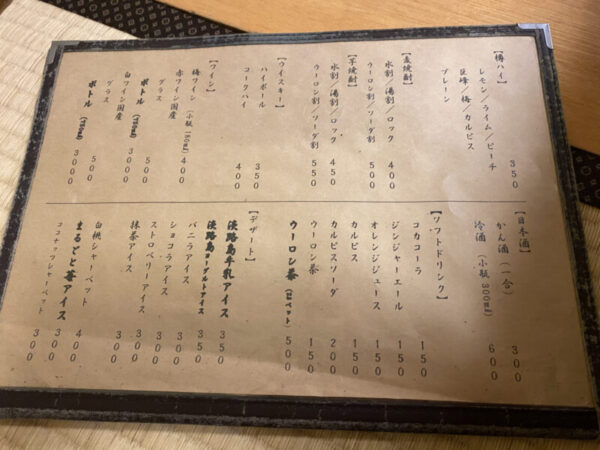 【樽ハイ】 350
レモン/ライム/ピーチ
巨峰/梅/カルピス
プレーン
【麦焼酎】
水割/湯割/ロック 400
ウーロン割/ソーダ割 500
【芋焼酎】
水割/湯割/ロック 450
ウーロン割/ソーダ割 550
【ウイスキー】
ハイボール 350
コークハイ 400
【ワイン】
梅ワイン(小瓶 180ml) 400
赤ワイン国産
グラス 500
ボトル(750ml) 3000
白ワイン国産
グラス 500
ボトル(750ml) 3000
【日本酒】
かん酒(一合) 300
冷酒(小瓶 300ml) 600
【ソフトドリンク】
コカコーラ 150
ジンジャーエール 150
オレンジジュース 150
カルピス 150
カルピスソーダ 200
ウーロン茶 150
ウーロン茶 500
【デザート】
淡路島牛乳アイス 350
淡路島ヨーグルトアイス 350
バニラアイス 300
ショコラアイス 300
ストロベリーアイス 300
抹茶アイス 300
白桃シャーベット 400
まるごと苺アイス 300
ココナッツシャーベット 300